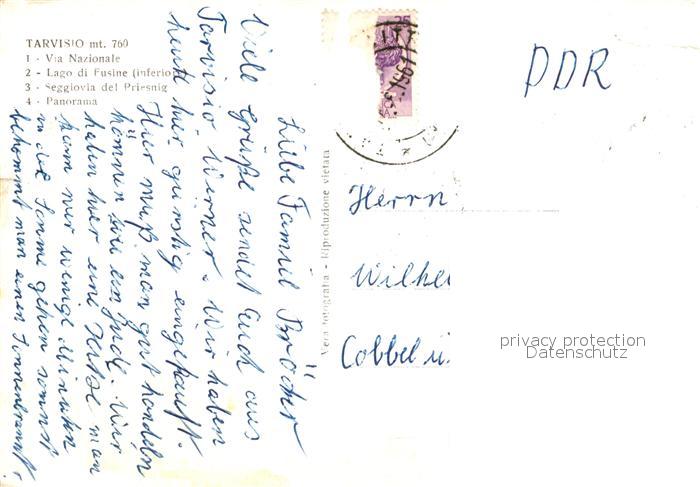 TARVISIO mt. 760
1 - Via Nazionale
2 - Lago di Fusine (inferio
3 - Seggiovia del Priesnig
4 - Panorama
Liebe Famiel Bröcker
Viele Grüße sendet Euch aus
Tarvisio Werner. Wir haben
heute hier günstig eingekauft.
Hier muß man gut handeln
können wie ein Jude. Wir
haben hier eine Hitze man
kann nur wenige Minuten
in der Sonne gehen sonnst
bekommt man einen Sonnenbrannt.
Vera fotografia - Riproduzione vietata
25
DDR
Herrn
Wilhe
Cobbel ü.
privacy protection
Datenschutz